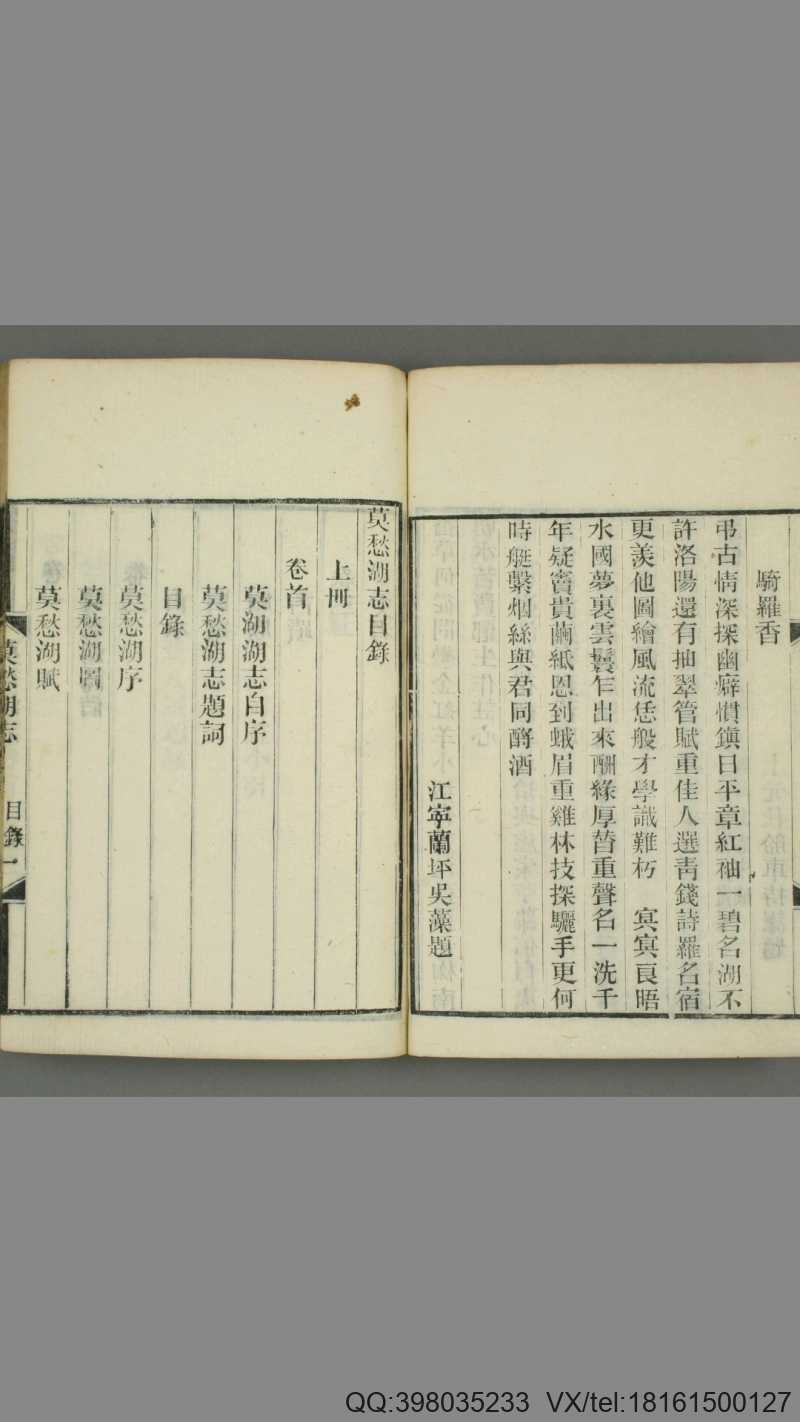 騎羅香
弔古情深探幽癖慣鎭日平章紅袖一碧名湖不
許洛陽還有抽翠管賦重佳人選靑錢詩羅名宿
更羨他圖繪風流恁般才學識難朽　冥冥良晤
水國夢裏雲鬟乍出來酬緣厚替重聲名一洗千
年疑竇貴繭紙恩到蛾眉重雞林技探驪手更何
時艇繫烟絲與君同酹酒
江寧蘭坪吳藻題
莫愁湖志目錄
上冊
卷首
莫湖湖志自序
莫愁湖志題詞
目錄
莫愁湖序
莫愁湖圖
莫愁湖賦
莫愁湖志
目錄一
QQ:398035233 VX/tel:18161500127